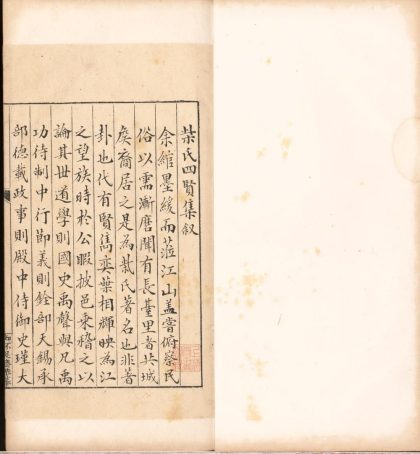 柴氏四賢集叙
余綰墨綬而蒞江山蓋嘗俯察民
俗以需漸磨聞有長臺里者共城
侯裔居之是為柴氏著名也非著
封也代有賢雋奕葉相輝映為江
之望族時於公暇披邑乘稽之以
論其世道學則國史禹聲與凡禹
功待制中行節義則銓部天錫承
部德載政事則殿中侍御史瑾大